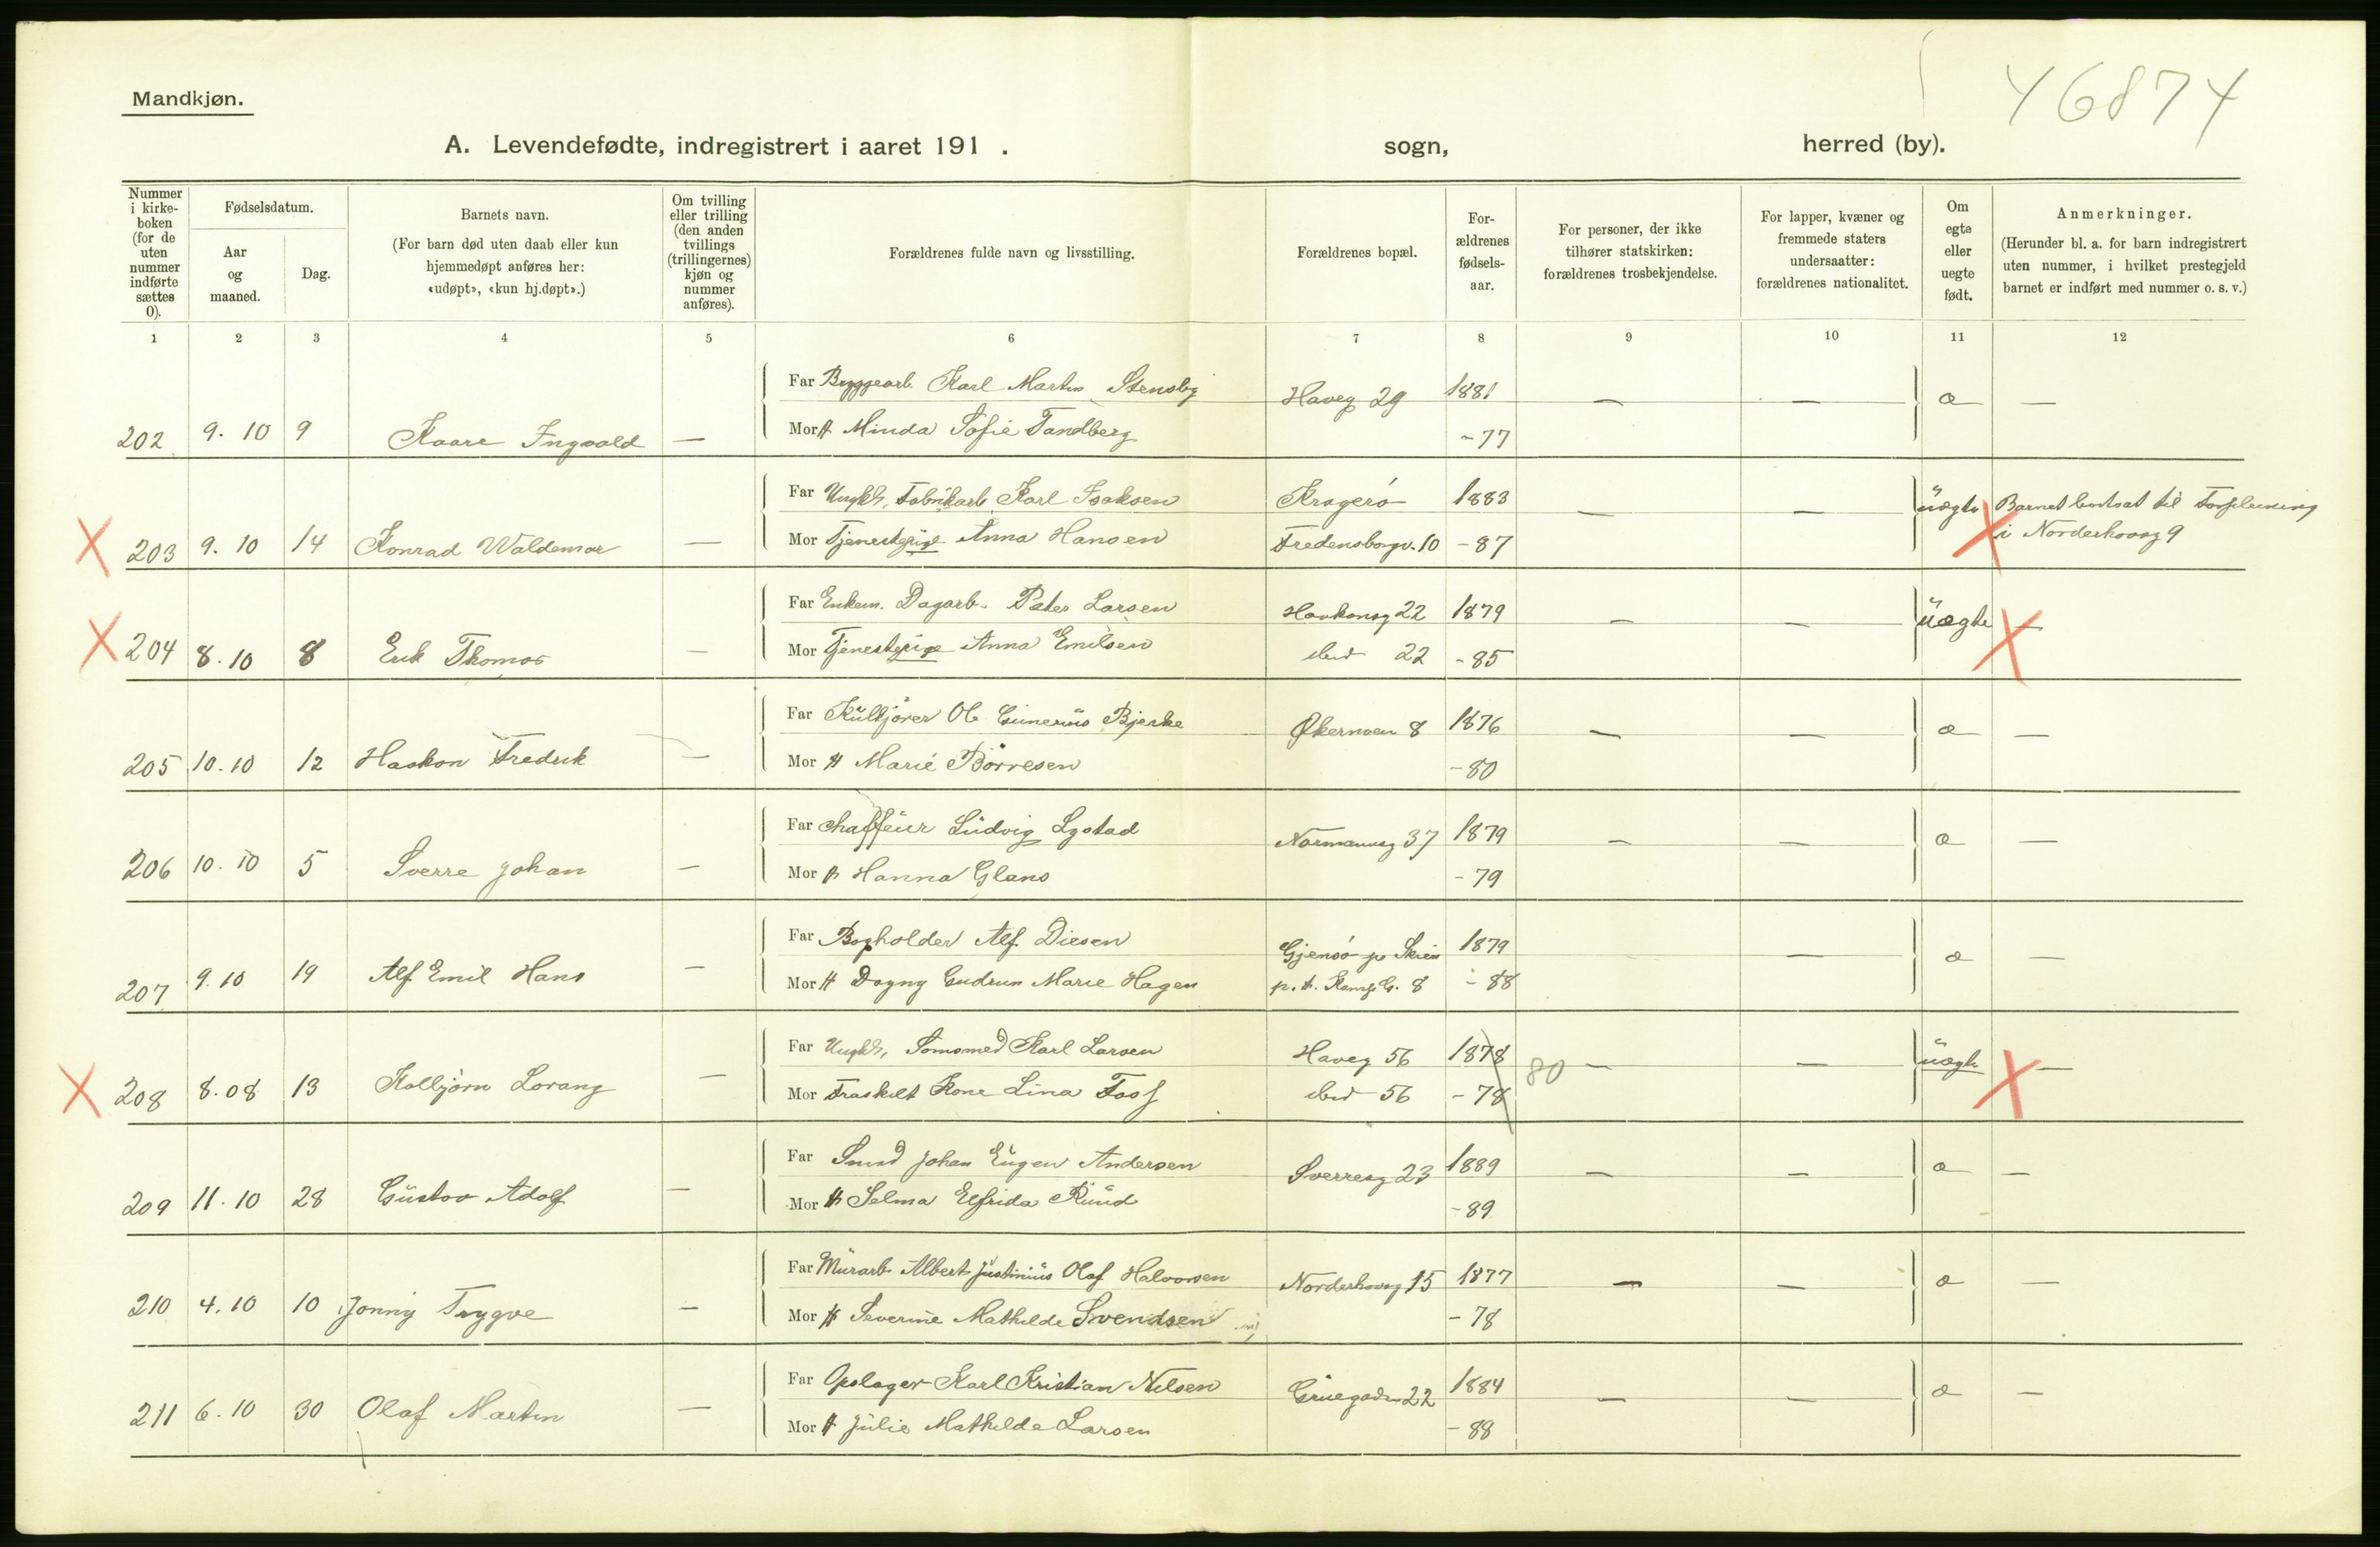 46874
Mandkjøn.
A. Levendefødte, indregistrert i aaret 191 . sogn, herred (by).
Nummer i kirke-boken (for de uten nummer indførte sættes 0).
Fødselsdatum.
Aar og maaned.
Dag.
Barnets navn.
(For barn død uten daab eller kun hjemmedøpt anføres her: «udøpt», «kun hj.døpt».)
Om tvilling eller trilling (den anden tvillings (trillingernes) kjøn og nummer anføres).
Forældrenes fulde navn og livsstilling.
Forældrenes bopæl.
For-ældrenes fødsels-aar.
For personer, der ikke tilhører statskirken: forældrenes trosbekjendelse.
For lapper, kvæner og fremmede staters undersaatter: forældrenes nationalitet.
Om egte eller uegte født.
Anmerkninger.
(Herunder bl. a. for barn indregistrert uten nummer, i hvilket prestegjeld barnet er indført med nummer o. s. v.)
1 2 3 4 5 6 7 8 9 10 11 12
Far Byggearb. Karl Martin Stensby Haveg 29 1881 — — æ —
202 9. 10 9 Kaare Ingvald — Mor H Minda Sofie Tandberg - 77
Far Ungk., Fabrikarb. Karl Isaksen Kragerö 1883 — — üægte Barnet bortsat til
X 203 9. 10 14 Konrad Waldemar — Mor Tjenestepige Anna Hansen Fredensborgv. 10 - 87 X i Norderhovsg 9
Far Enkem. Dagarb. Peter Larsen Haakonsg 22 1879 — — üægte —
X 204 8. 10 8 Erik Thomas — Mor Tjenestepige Anna Emilsen ibid 22 - 85 X
Far Külkjörer Ole Günerius Bjerke Økernveien 8 1876 — — æ —
205 10. 10 12 Haakon Fredrik — Mor H Marie Börresen - 80
Far Chaffeür Lüdvig Lystad Normannsg 37 1879 — — æ —
206 10. 10 5 Sverre Johan — Mor H Hanna Glans - 79
Far Bogholder Alf Diesen Gjemsö pr Skien 1879 — æ —
207 9. 10 19 Alf Emil Hans — Mor H Dagny Gudrun Marie Hagen p.t. Kampg. 8 - 88
Far Ungk., Sömsmed Karl Larsen Haveg 56 1878 80 — — üægte —
X 208 8. 08 13 Kolbjörn Lorang — Mor Fraskilt Kone Lina Foss ibid 56 - 78 X
Far Smed Johan Eügen Andersen Sverresg 23 1889 — — æ —
209 11. 10 28 Güstav Adolf — Mor H Selma Elfrida Rüud - 89
Far Mürarb. Albert Jüstiniüs Olaf Halvorsen Norderhovsg 15 1877 — — æ —
210 4. 10 10 Jonny Trygve — Mor H Severine Mathilde Svendsen - 78
Far Opslager Karl Kristian Nilsen Grüegaden 22 1884 — — æ —
211 6. 10 30 Olaf Martin — Mor H Jülie Mathilde Larsen - 88